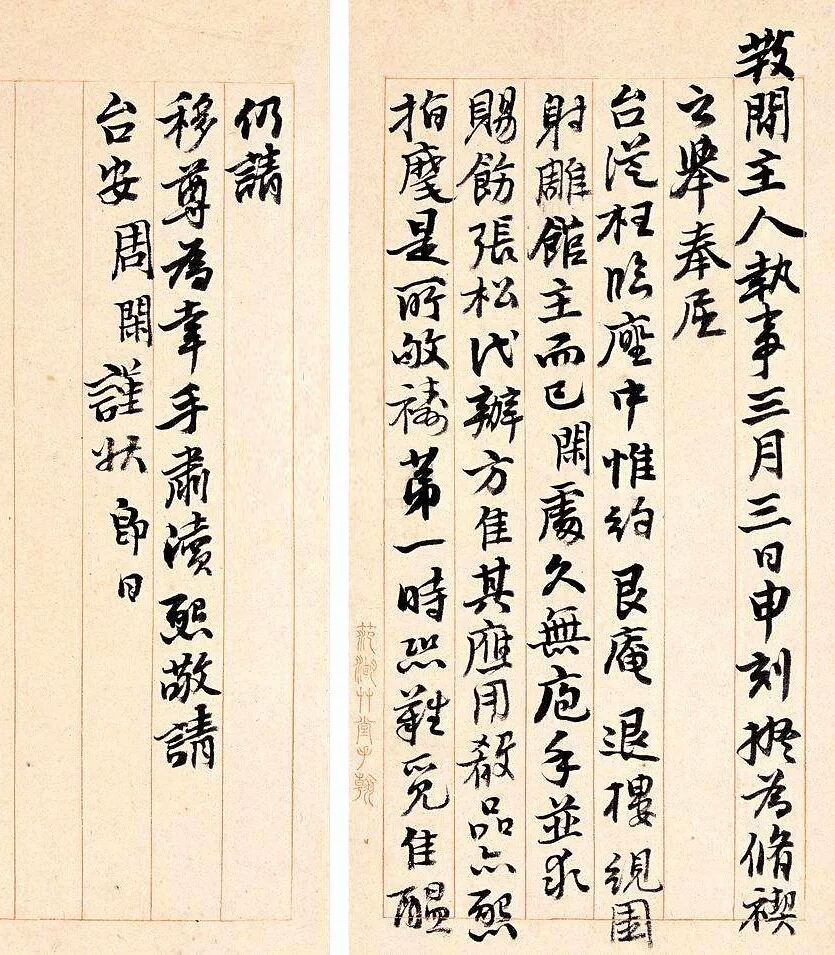 閒主人執事三月三日申刻擬為脩禊
之舉奉屈
台從枉臨座中惟約艮庵退樓
射雕館主而已閑處久無庖手並求
賜飭張松代辦方佳其應用殽品亦懇
指麾是所敬禱第一時恐難覓佳醞
范湖艸堂手翰
仍請
移尊為幸手肅瀆懇敬請
台安周閑謹狀 即日